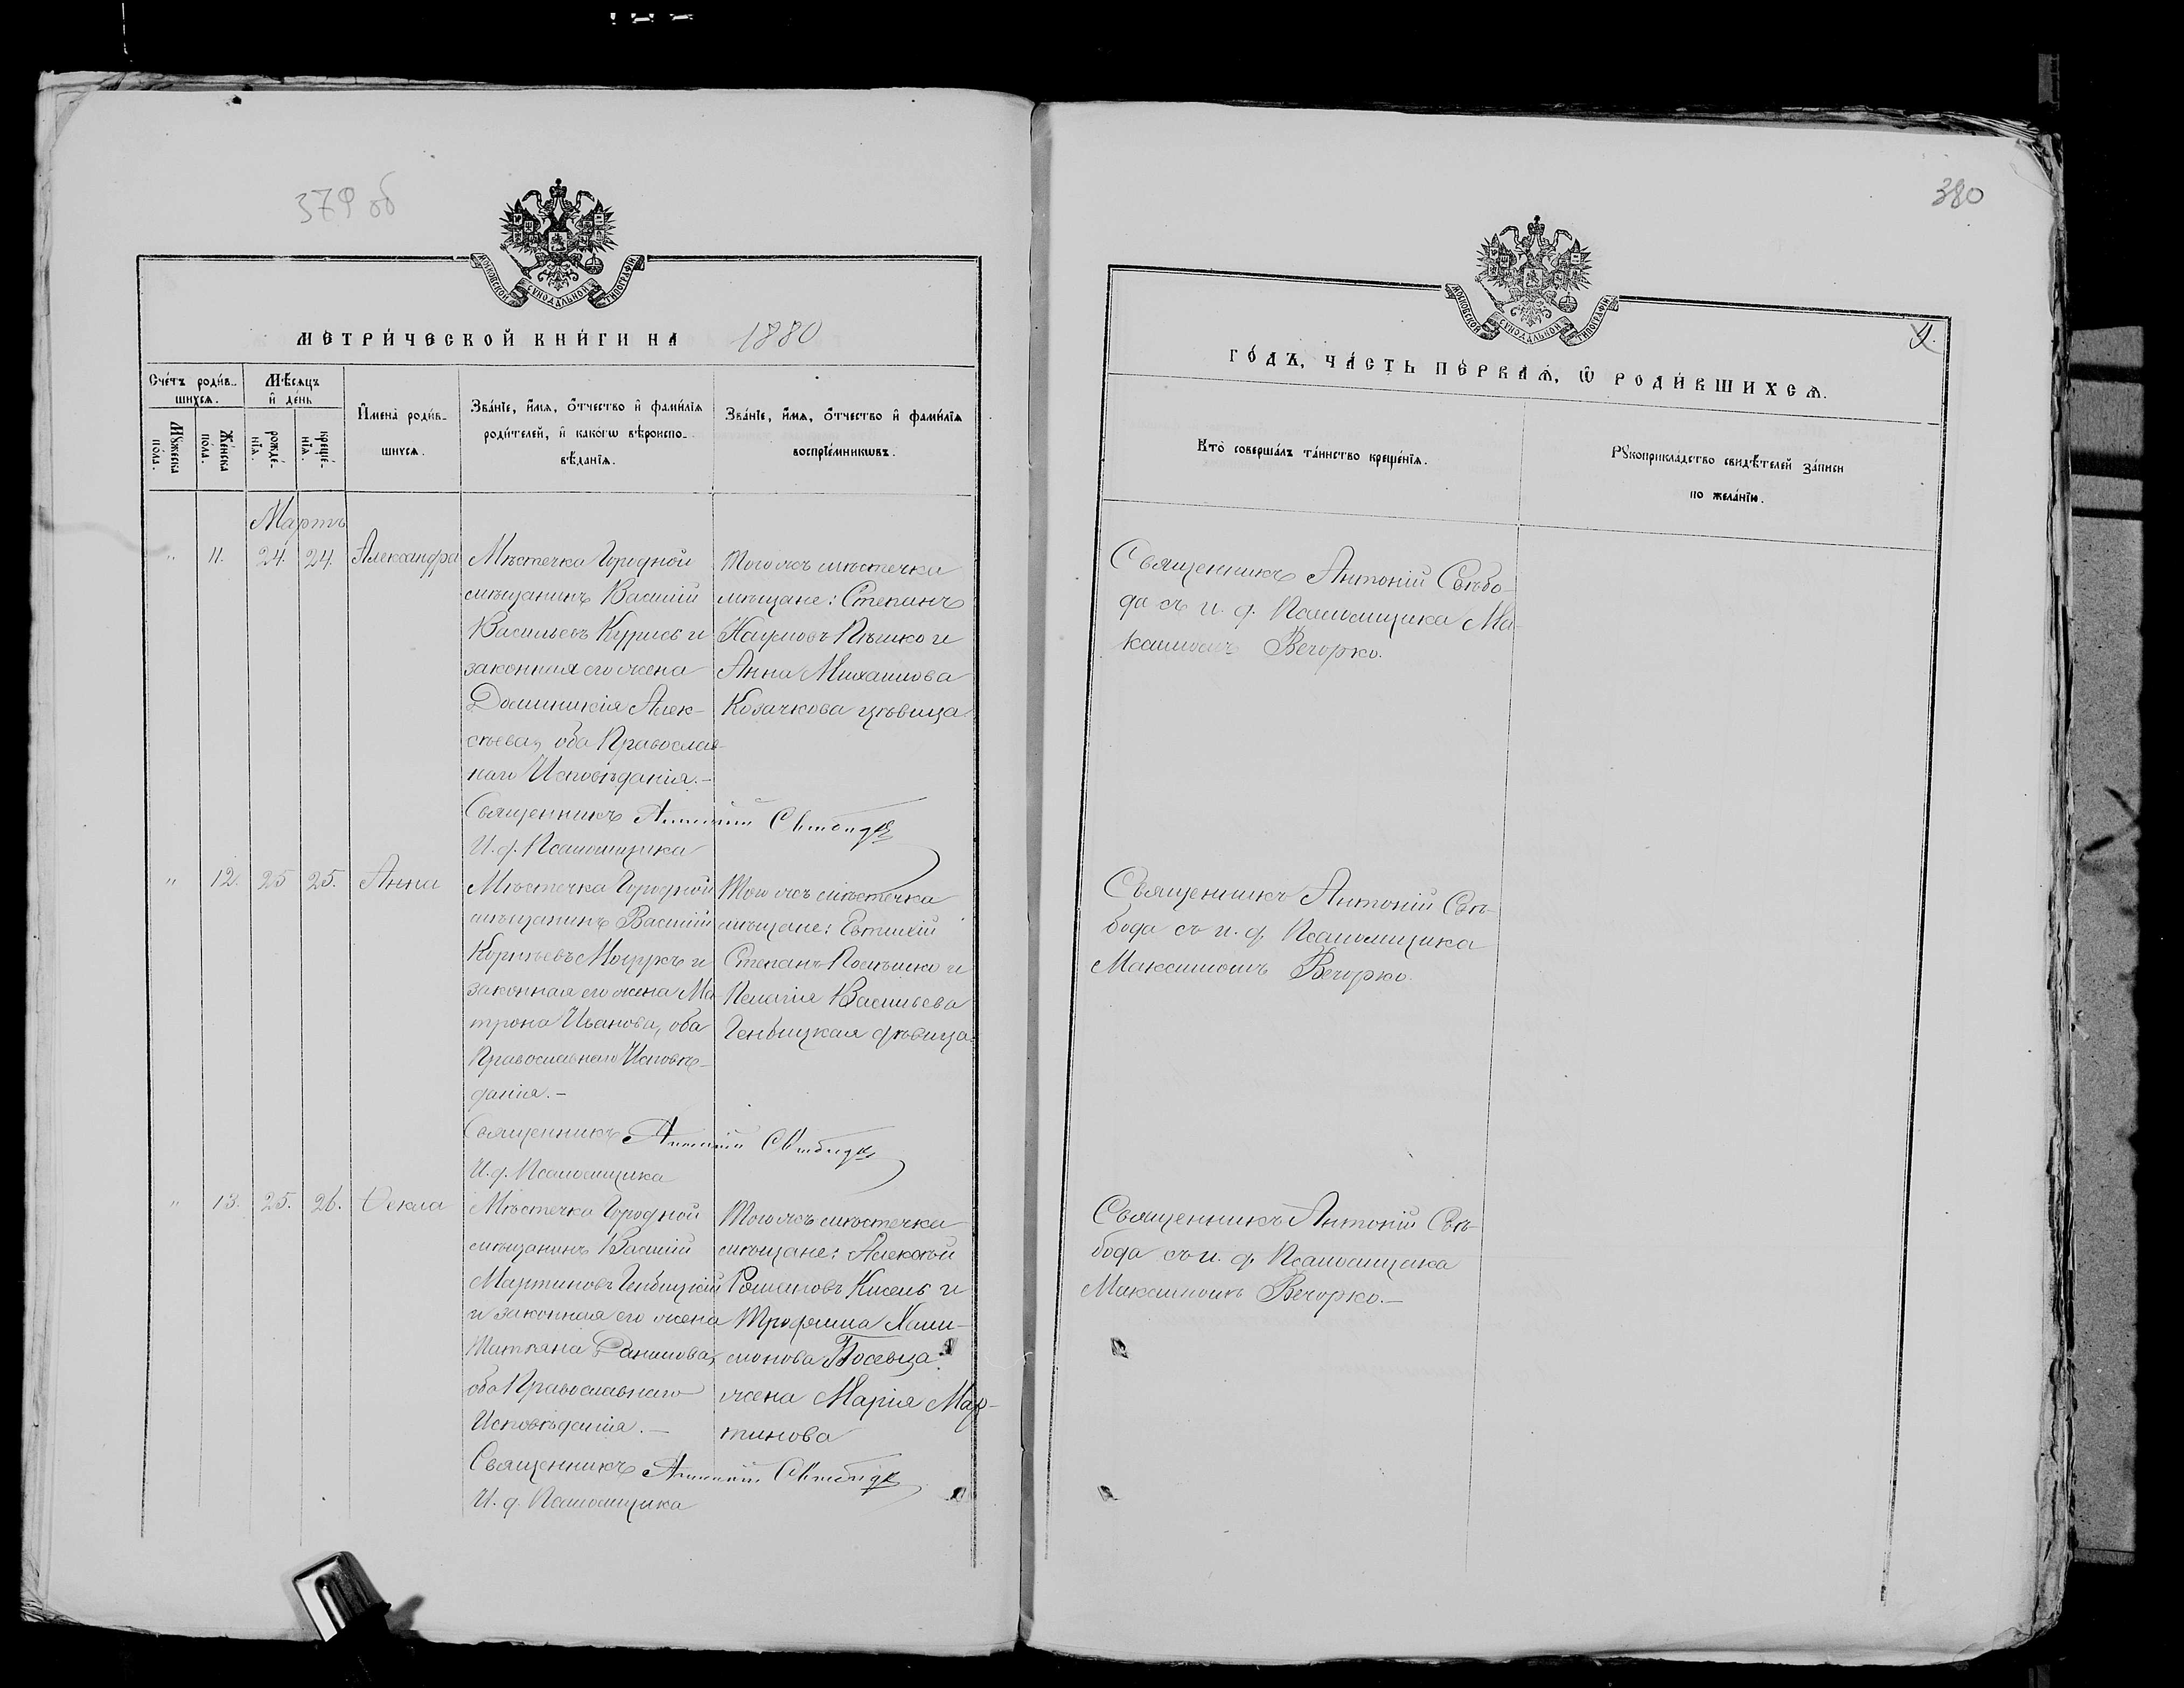 379 об
МОСКОВСКОЙ СУНОДАЛЬНОЙ ТИПОГРАФІИ
МЕТРИ́ЧЕСКОЙ КНИ́ГИ НА 1880
Сче́тъ роди́в-
шихсѧ.
Мѣ́сѧцъ
и҆ де́нь
Мꙋ́жеска
по́ла.
Же́нска
по́ла.
рожде́-
нїѧ.
креще́-
нїѧ.
И҆мена̀ роди́в-
шихсѧ.
Зва́нїе, и҆́мѧ, ѻ҆́тчество и҆ фами́лїѧ
роди́телей, и҆ како́гѡ вѣроиспо-
вѣ́данїѧ.
Зва́нїе, и҆́мѧ, ѻ҆́тчество и҆ фами́лїѧ
воспрїе́мникѡвъ.
Мартъ
" 11. 24. 24. Александра
Мѣстечка Городной
мѣщанинъ Василій
Васильевъ Курись и
законная его жена
Доминикія Алек-
сѣева, оба Православ-
наго Исповѣданія.-
Священникъ Антоній Свѣбода
И. д. Псаломщика
Того жъ мѣстечка
мѣщане: Степанъ
Наумовъ Пѣшко и
Анна Михаилова
Козачкова дѣвица
" 12. 25 25. Анна
Мѣстечка Городной
мѣщанинъ Василій
Корнѣевъ и
законная его жена Ма-
трона Иванова, оба
Православнаго Исповѣ-
данія.-
Священникъ Антоній Свѣбода
И. д. Псаломщика
Того жъ мѣстечка
мѣщане: Евтихій
Степанъ и
Пелагія Васильева
Генбицкая дѣвица
" 13. 25. 26. Ѳекла
Мѣстечка Городной
мѣщанинъ Василій
Мартиновъ Генбицкій
и законная его жена
Татіана Данилова,
оба Православнаго
Исповѣданія.-
Священникъ Антоній Свѣбода
И. д. Псаломщика
Того жъ мѣстечка
мѣщане: Алексѣй
Романовъ Кисель и
Трофима
жена Марія Мар-
тинова
380
МОСКОВСКОЙ СУНОДАЛЬНОЙ ТИПОГРАФІИ
4.
ГО́ДЪ, ЧА́СТЬ ПЕ́РВАѦ, Ѡ҆ РОДИ́ВШИХСѦ.
Кто̀ соверша́лъ та́инство креще́нїѧ.
Рꙋкоприкла́дство свидѣ́телей за́писи
по жела́нїю.
Священникъ Антоній Свѣбо-
да съ и. д. Псаломщика Ма-
ксимомъ Вечорко.
Священникъ Антоній Свѣ-
бода съ и. д. Псаломщика
Максимомъ Вечорко.
Священникъ Антоній Свѣ-
бода съ и. д. Псаломщика
Максимомъ Вечорко.-